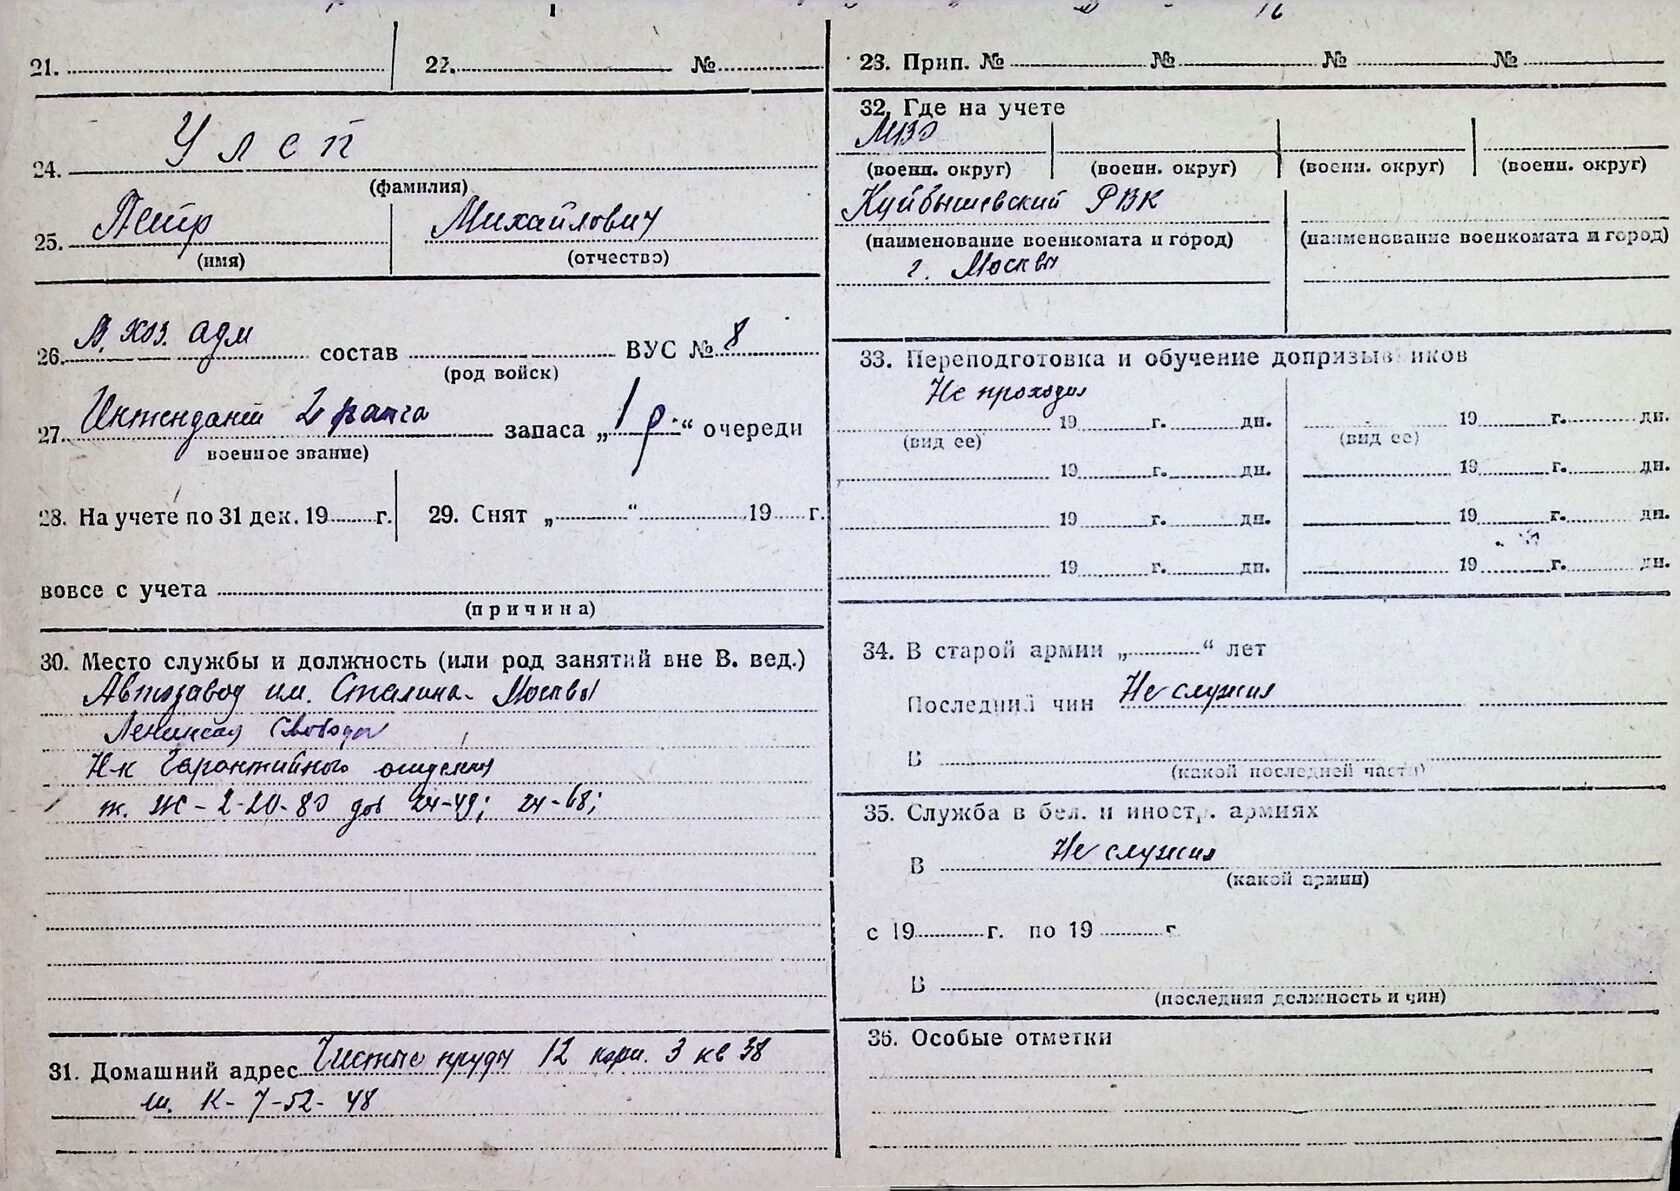 21. 22. №
24. Улеп
(фамилия)
25. Петр Михайлович
(имя) (отчество)
26. В. хоз. адм состав ВУС № 8
(род войск)
27. Интендант 2 ранга запаса „1 р.“ очереди
военное звание)
28. На учете по 31 дек. 19 г. 29. Снят „ “ 19 г.
вовсе с учета
(причина)
30. Место службы и должность (или род занятий вне В. вед.)
Автозавод им. Сталина- Москвы
Ленинская Свобода
Н-к Гарантийного
т. Ж-2-20-80 доб 24-49; 24-68;
31. Домашний адрес Чистые пруды 12 корп. 3 кв 38
т. К-7-52-48
23. Прип. № № № №
32. Где на учете
МВО
(воени. округ) (воени. округ) (воени. округ) (воени. округ)
Куйбышевский РВК
(наименование военкомата и город) (наименование военкомата и город)
г. Москвы
33. Переподготовка и обучение допризывников
Не проходил
19 г. дн. 19 г. дн.
(вид ее) (вид ее)
19 г. дн. 19 г. дн.
19 г. дн. 19 г. дн.
19 г. дн. 19 г. дн.
34. В старой армии „ “ лет
Последний чин Не служил
В
(какой последней части)
35. Служба в бел. и иностр. армиях
В Не служил
(какой армии)
с 19 г. по 19 г
В
(последняя должность и чин)
36. Особые отметки